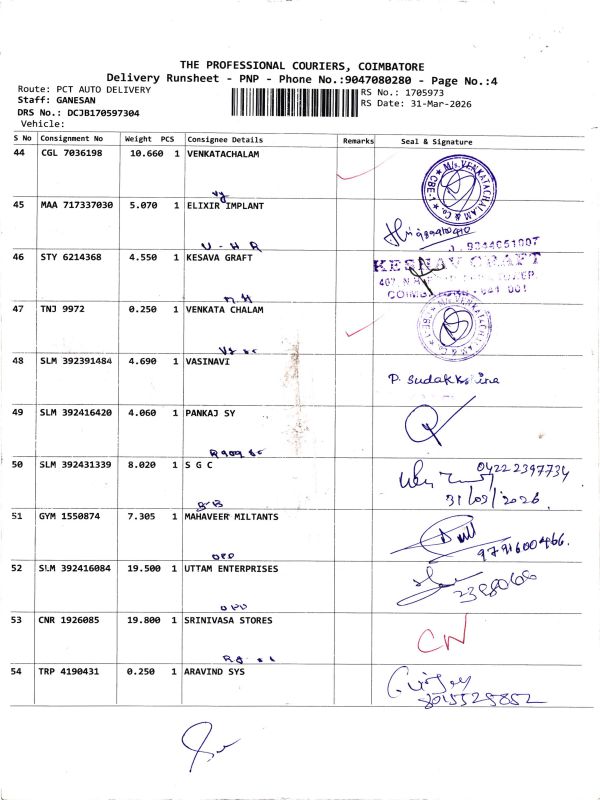 THE PROFESSIONAL COURIERS, COIMBATORE
Delivery Runsheet - PNP - Phone No.:9047080280 - Page No.:4
Route: PCT AUTO DELIVERY
Staff: GANESAN
DRS No.: DCJB170597304
Vehicle:
RS No.: 1705973
RS Date: 31-Mar-2026
S No Consignment No Weight PCS Consignee Details Remarks Seal & Signature
44 CGL 7036198 10.660 1 VENKATACHALAM
M/s. VENKATACHALAM & Co. CBE-1
45 MAA 717337030 5.070 1 ELIXIR IMPLANT
U - H R
46 STY 6214368 4.550 1 KESAVA GRAFT
9344651007
KESHAV CRAFT
47 TNJ 9972 0.250 1 VENKATA CHALAM
M/s. VENKATACHALAM & Co. CBE-1
48 SLM 392391484 4.690 1 VASINAVI
P. Sudakkshina
49 SLM 392416420 4.060 1 PANKAJ SY
50 SLM 392431339 8.020 1 S G C
04222397734
31/03/2026
51 GYM 1550874 7.305 1 MAHAVEER MILTANTS
9791600466.
OPP
52 SLM 392416084 19.500 1 UTTAM ENTERPRISES
2398066
OPP
53 CNR 1926085 19.800 1 SRINIVASA STORES
CN
54 TRP 4190431 0.250 1 ARAVIND SYS
8015525852